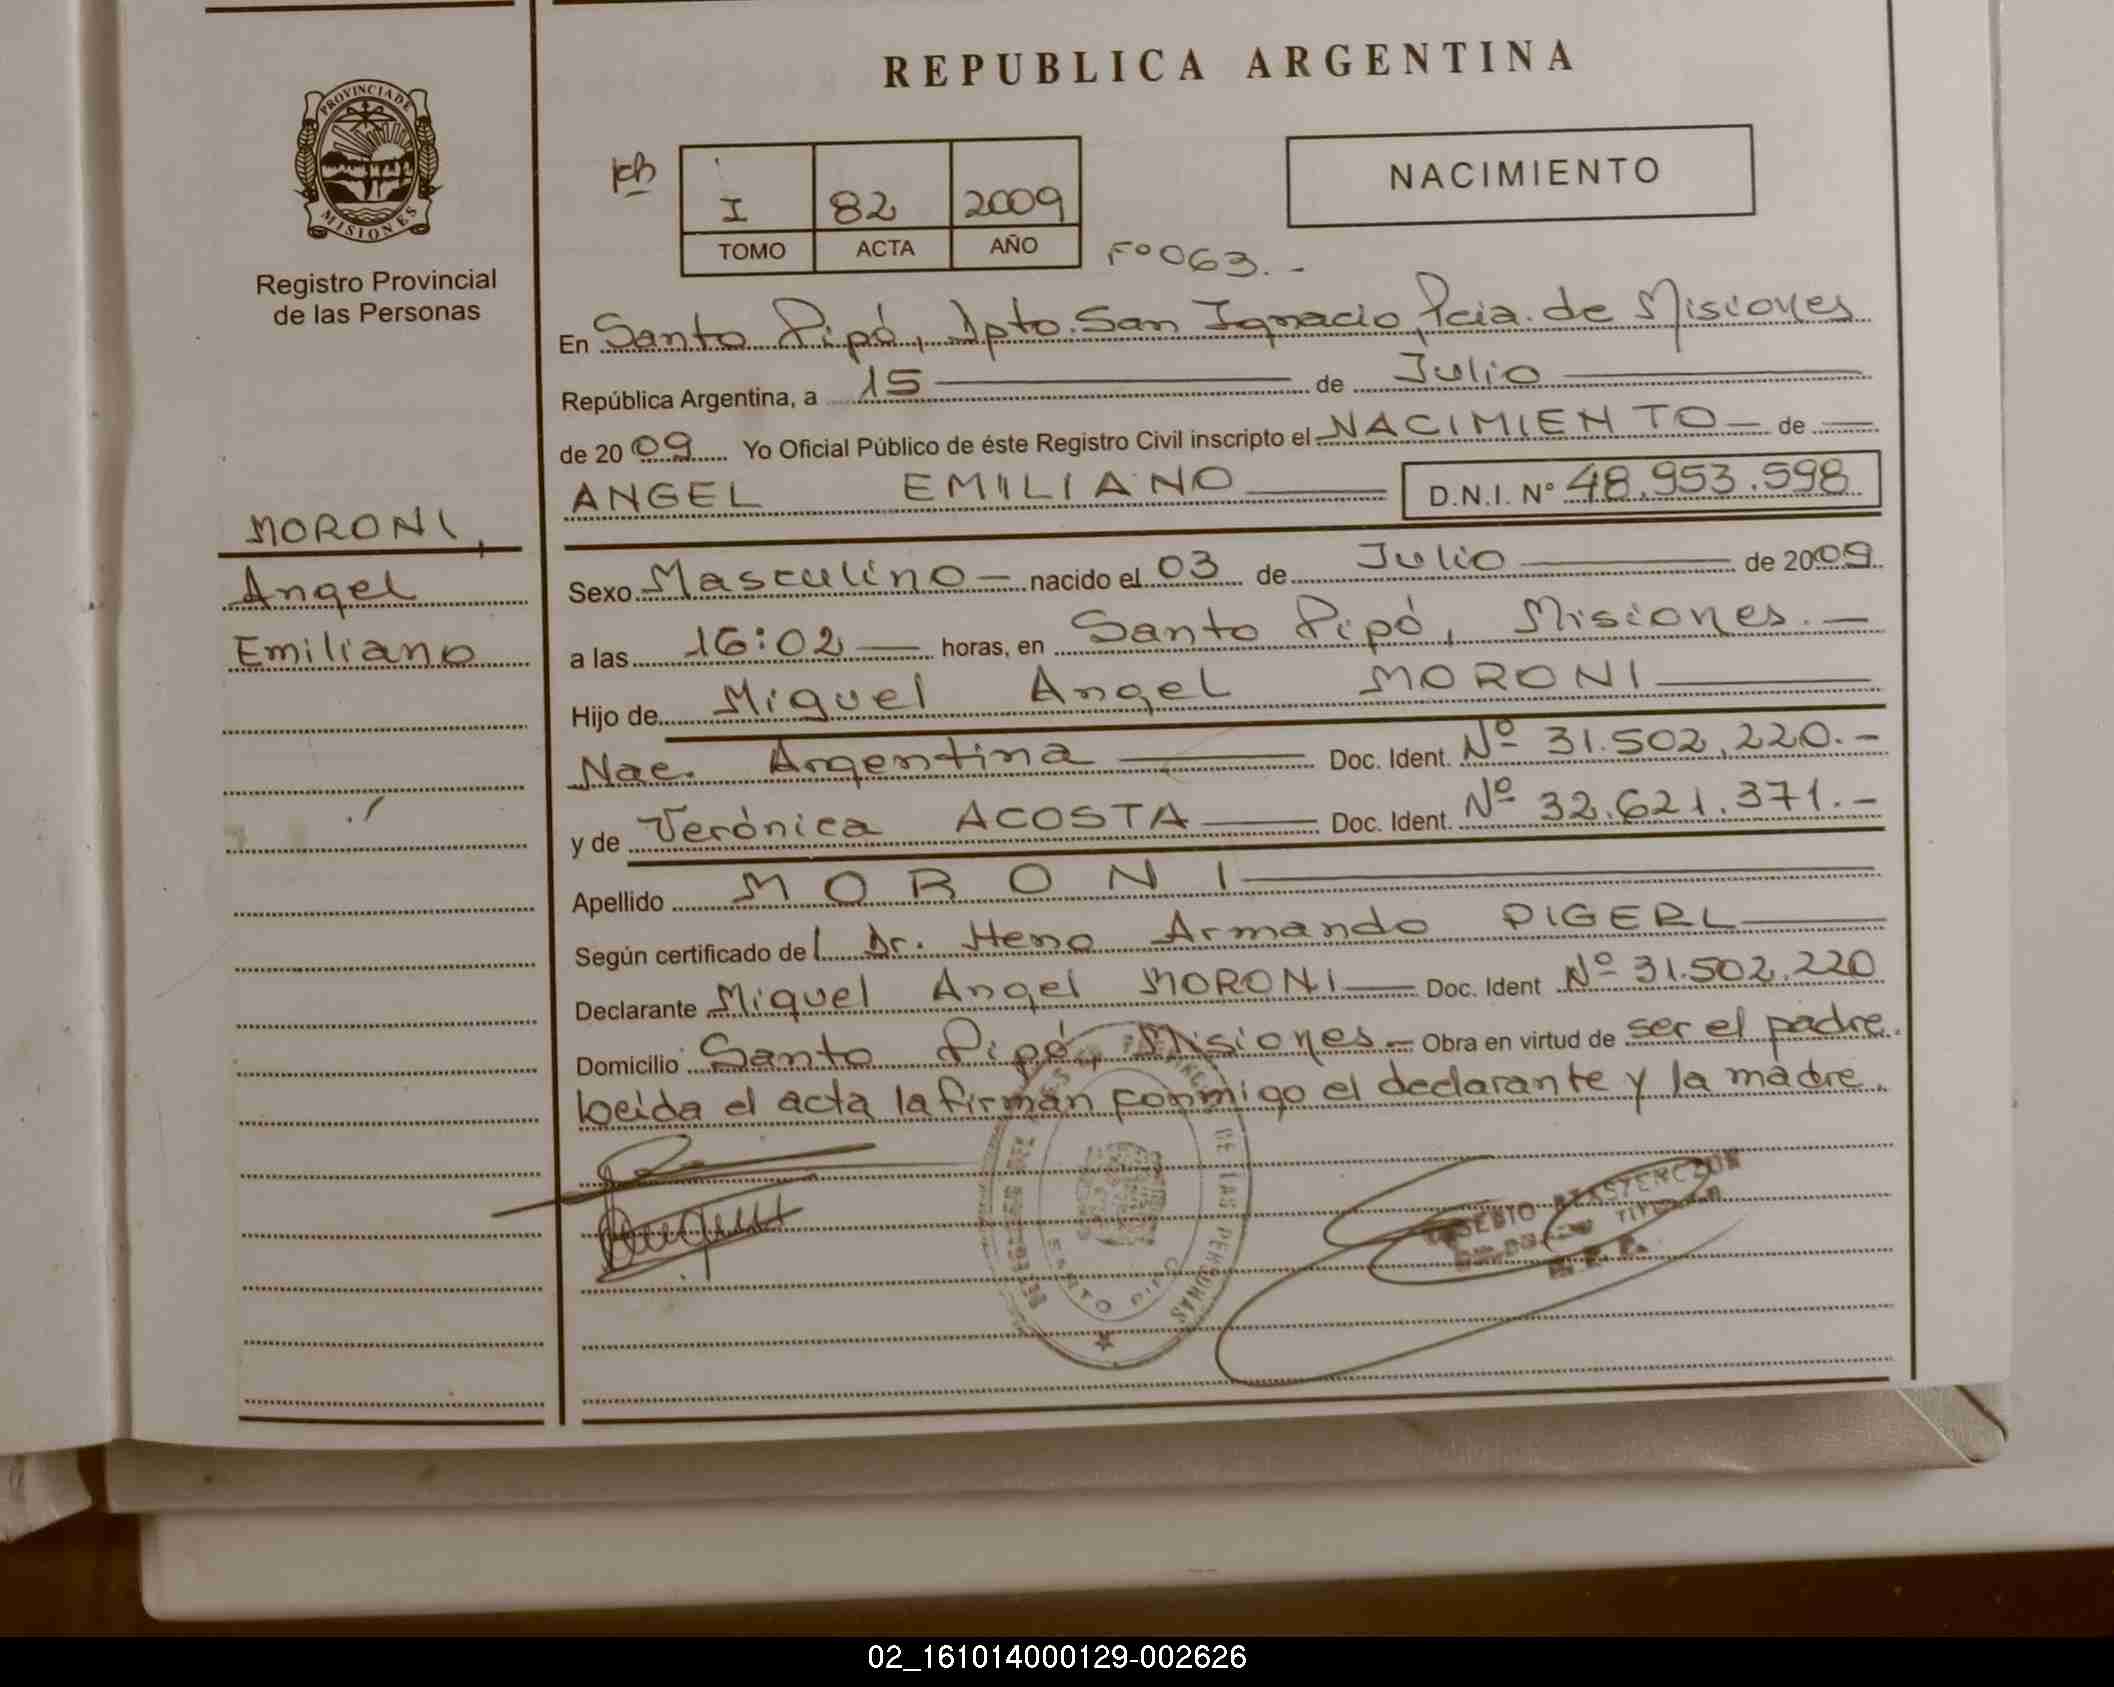 REPUBLICA ARGENTINA
PROVINCIA DE
MISIONES
Registro Provincial
de las Personas
I 82 2009
TOMO ACTA AÑO
Fº 063.-
NACIMIENTO
En Santo Pipó, Dpto. San Ignacio, Pcia. de Misiones
República Argentina, a 15 de Julio
de 2009 Yo Oficial Público de éste Registro Civil inscripto el NACIMIENTO de
ANGEL EMILIANO D.N.I. Nº 48.953.598
MORONI,
Angel
Emiliano
Sexo Masculino nacido el 03 de Julio de 2009
a las 16:02 horas, en Santo Pipó, Misiones.-
Hijo de Miguel Angel MORONI
Nac. Argentina Doc. Ident. Nº 31.502.220.-
y de Verónica ACOSTA Doc. Ident. Nº 32.621.371.-
Apellido MORONI
Según certificado del Dr. Heno Armando PIGERL
Declarante Miguel Angel MORONI Doc. Ident Nº 31.502.220
Domicilio Santo Pipó, Misiones.- Obra en virtud de ser el padre.
Leida el acta la firman conmigo el declarante y la madre.
DE LAS PERSONAS
02_161014000129-002626